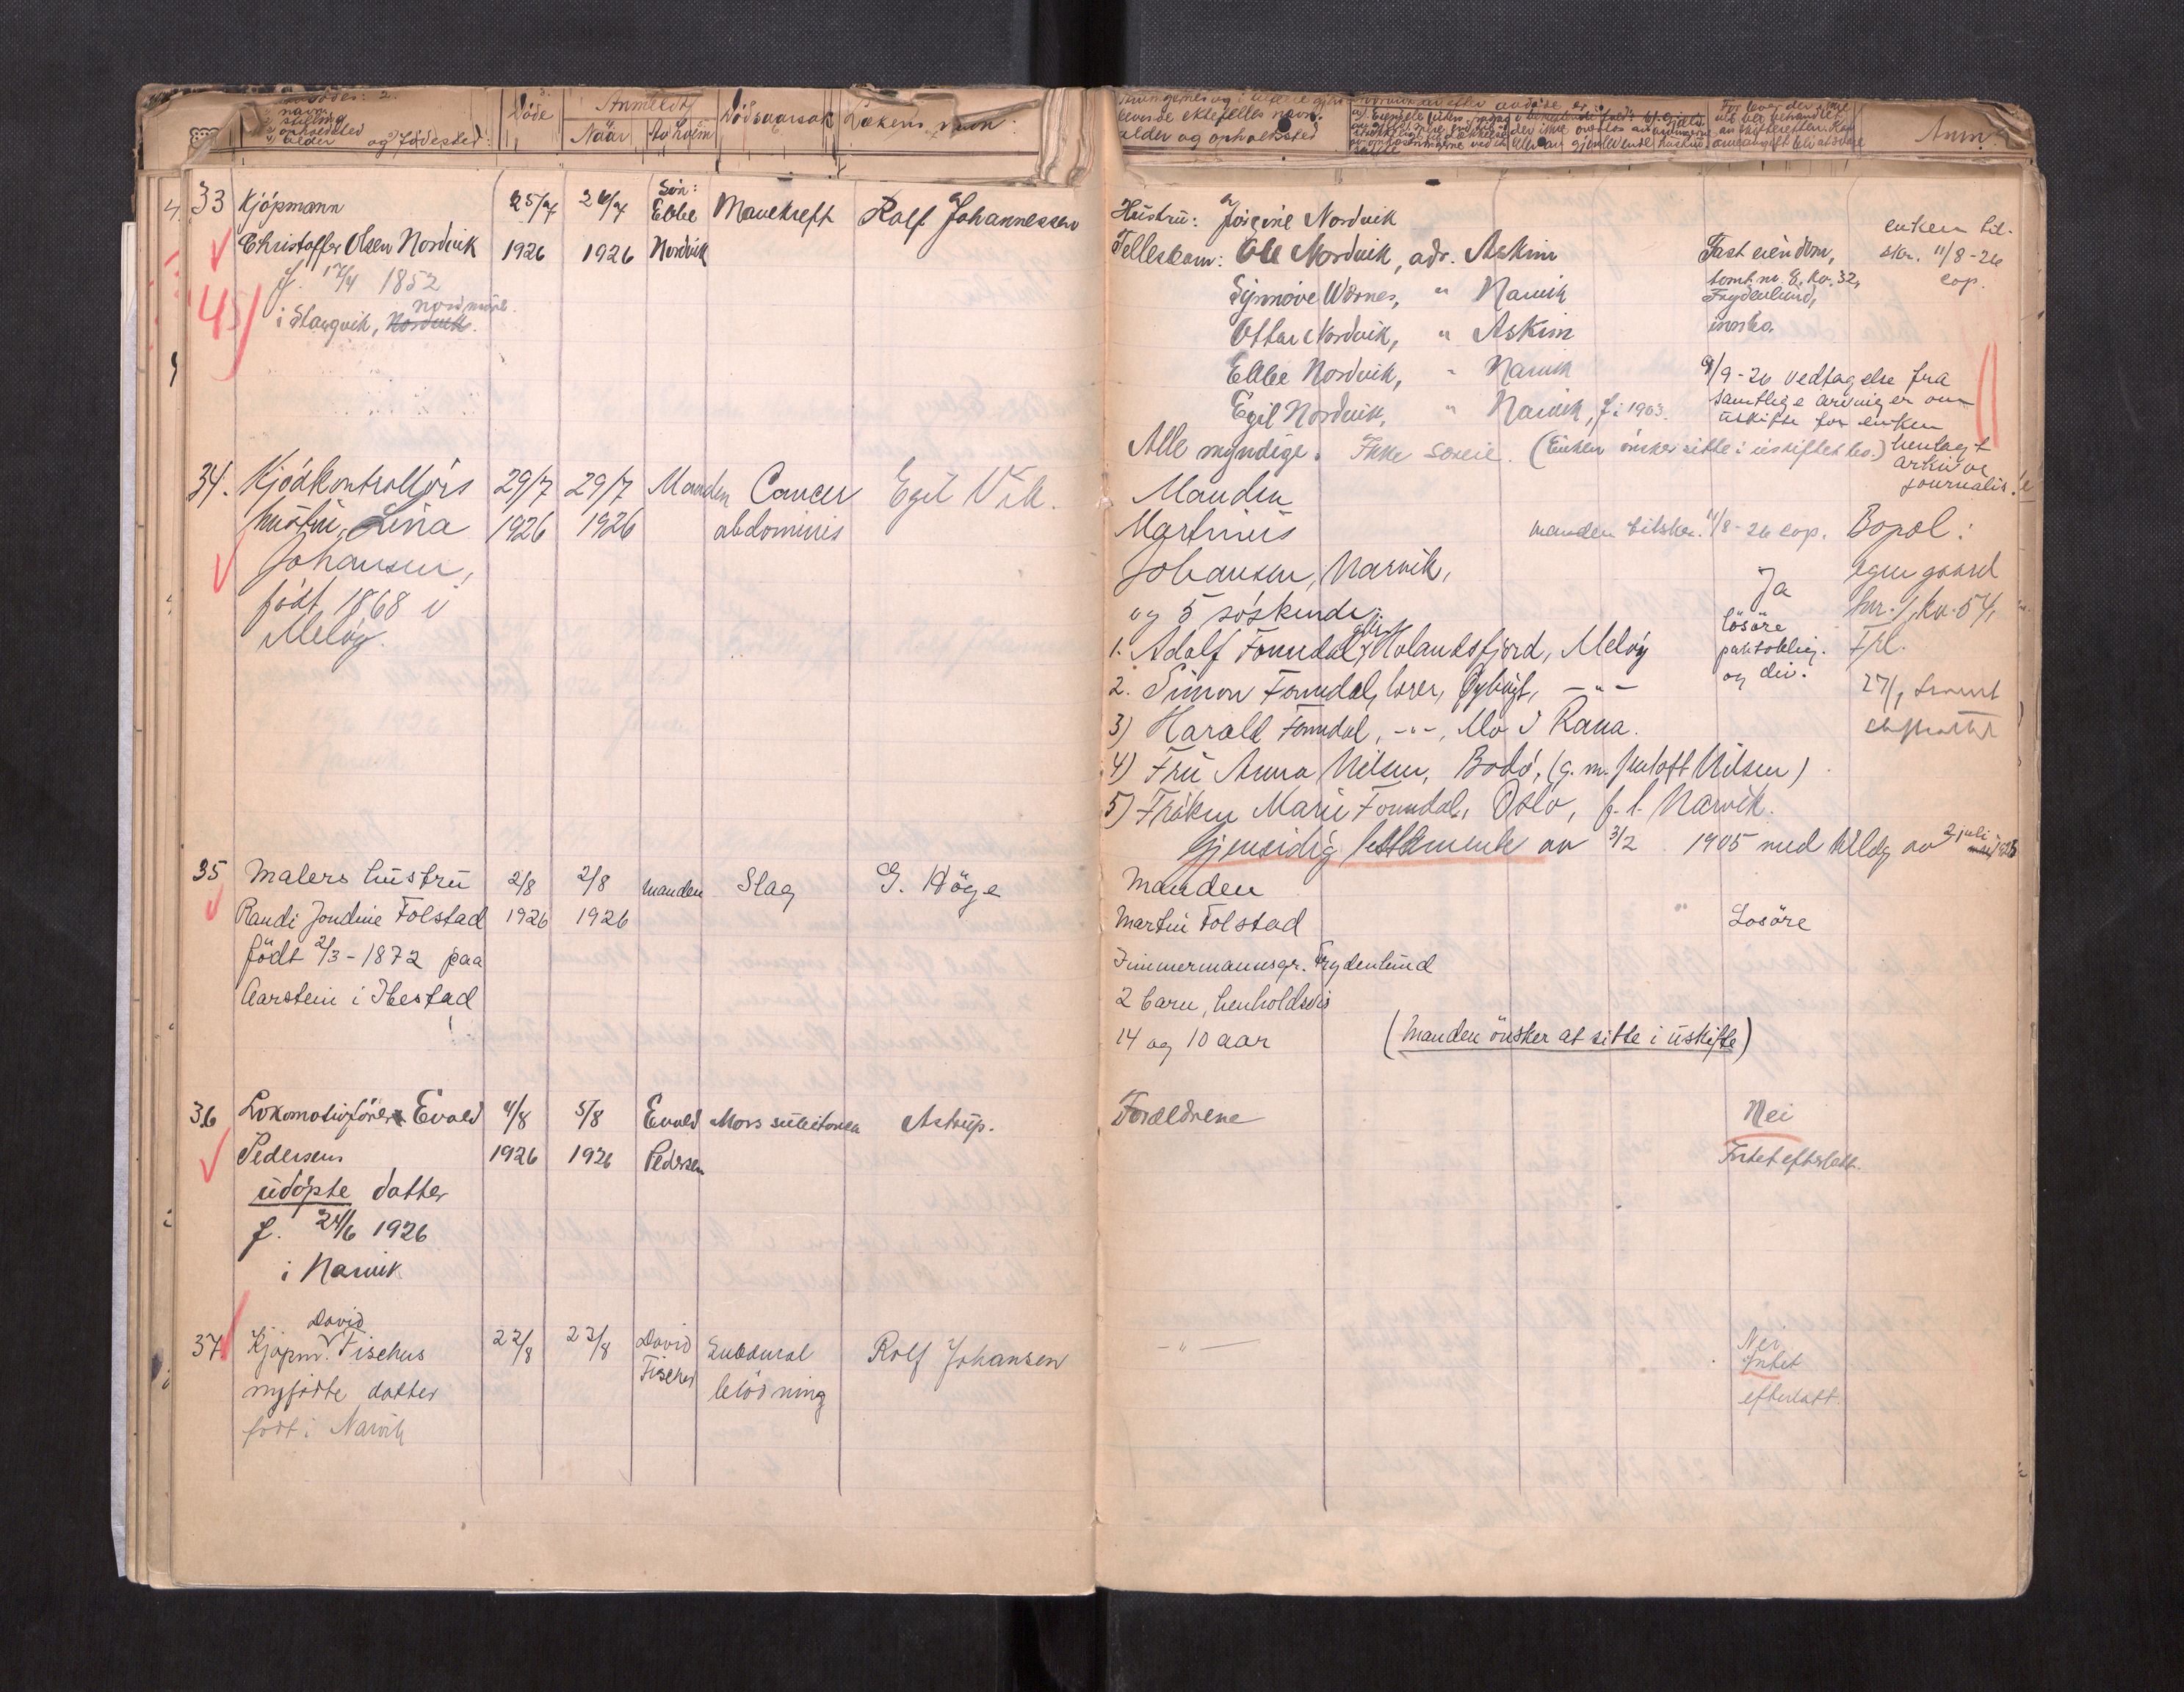 navn
stilling
opholdsted
alder og fødested:
Døde
Anmeldt
Naar
Av hvem
Dødsaarsak
Lækens navn
levende ektefelles navn,
alder og opholdssted
Anm.
33 Kjøpmann
Christoffer Olsen Nordvik
f. 17/4 1852
nordmøre.
i Stangvik, Nordvik.
45
25/7
1926
26/7
1926
Søn:
Ebbe
Nordvik
Mavekreft
Rolf Johannessen
Hustru: Jørgine Nordvik
Fellesbarn: Ole Nordvik, adr. Askim
Synnøve Wærnes, " Narvik
Ottar Nordvik, " Askim
Ebbe Nordvik, " Narvik
Egil Nordvik, " Narvik, f. i 1903.
Alle myndige. Ikke særeie. (Enken ønsker sitte i uskiftet bo.)
Fast eiendom,
tomt nr. 8, kv. 32,
Frydenlund,
innbo.
9/9-26 vedtagelse fra
samtlige arvinger om
uskifte for enken
henlagt
arkivet
journalis.
enken til-
skr. 11/8-26
cop.
34. Kjødkontrollørs
hustru, Lina
Johansen,
født 1868 i
Meløy.
29/7
1926
29/7
1926
Manden
Cancer
abdominis
Egil Vik.
Manden
Martinus
Johansen, Narvik,
og 5 søskende:
1. Adolf Fonndal, Holandsfjord, Meløy
2. Simon Fonndal, lærer, Øybugt, -"-
3) Harald Fonndal, -"-, Mo i Rana.
4) Fru Anna Nilsen, Bodø, (g. m. Nilsen)
5) Frøken Marie Fonndal, Oslo, f. t. Narvik.
Gjensidig testamente av 3/2 1905 med tillæg av 2 juli 1926
manden tilskr. 11/8-26 cop.
Ja
løsøre
pantoblig.
og div.
Bopæl:
egen gaard
hnr. 1, kv. 54,
Frl.
35 Malers hustru
Randi Jondine Folstad
født 2/3-1872 paa
Aarstein i Ibestad
2/8
1926
2/8
1926
manden
Slag
G. Høge
Manden
Martin Folstad
Timmermannsgr. Frydenlund
2 barn, henholdsvis
14 og 10 aar
(Manden ønsker at sitte i uskifte)
Løsøre
36 Lokomotivfører Evald
Pedersens
udøpte datter
f. 24/6 1926
i Narvik
4/8
1926
5/8
1926
Evald
Pedersen
Mors subitanea
Astrup.
Forældrene
Nei
Intet efterlatt.
David
37 Kjøpm. Fischers
nyfødte datter
født i Narvik
22/8
23/8
David
Fischer
Subdural
blødning
Rolf Johansen
-"-
Nei
Intet
efterlatt